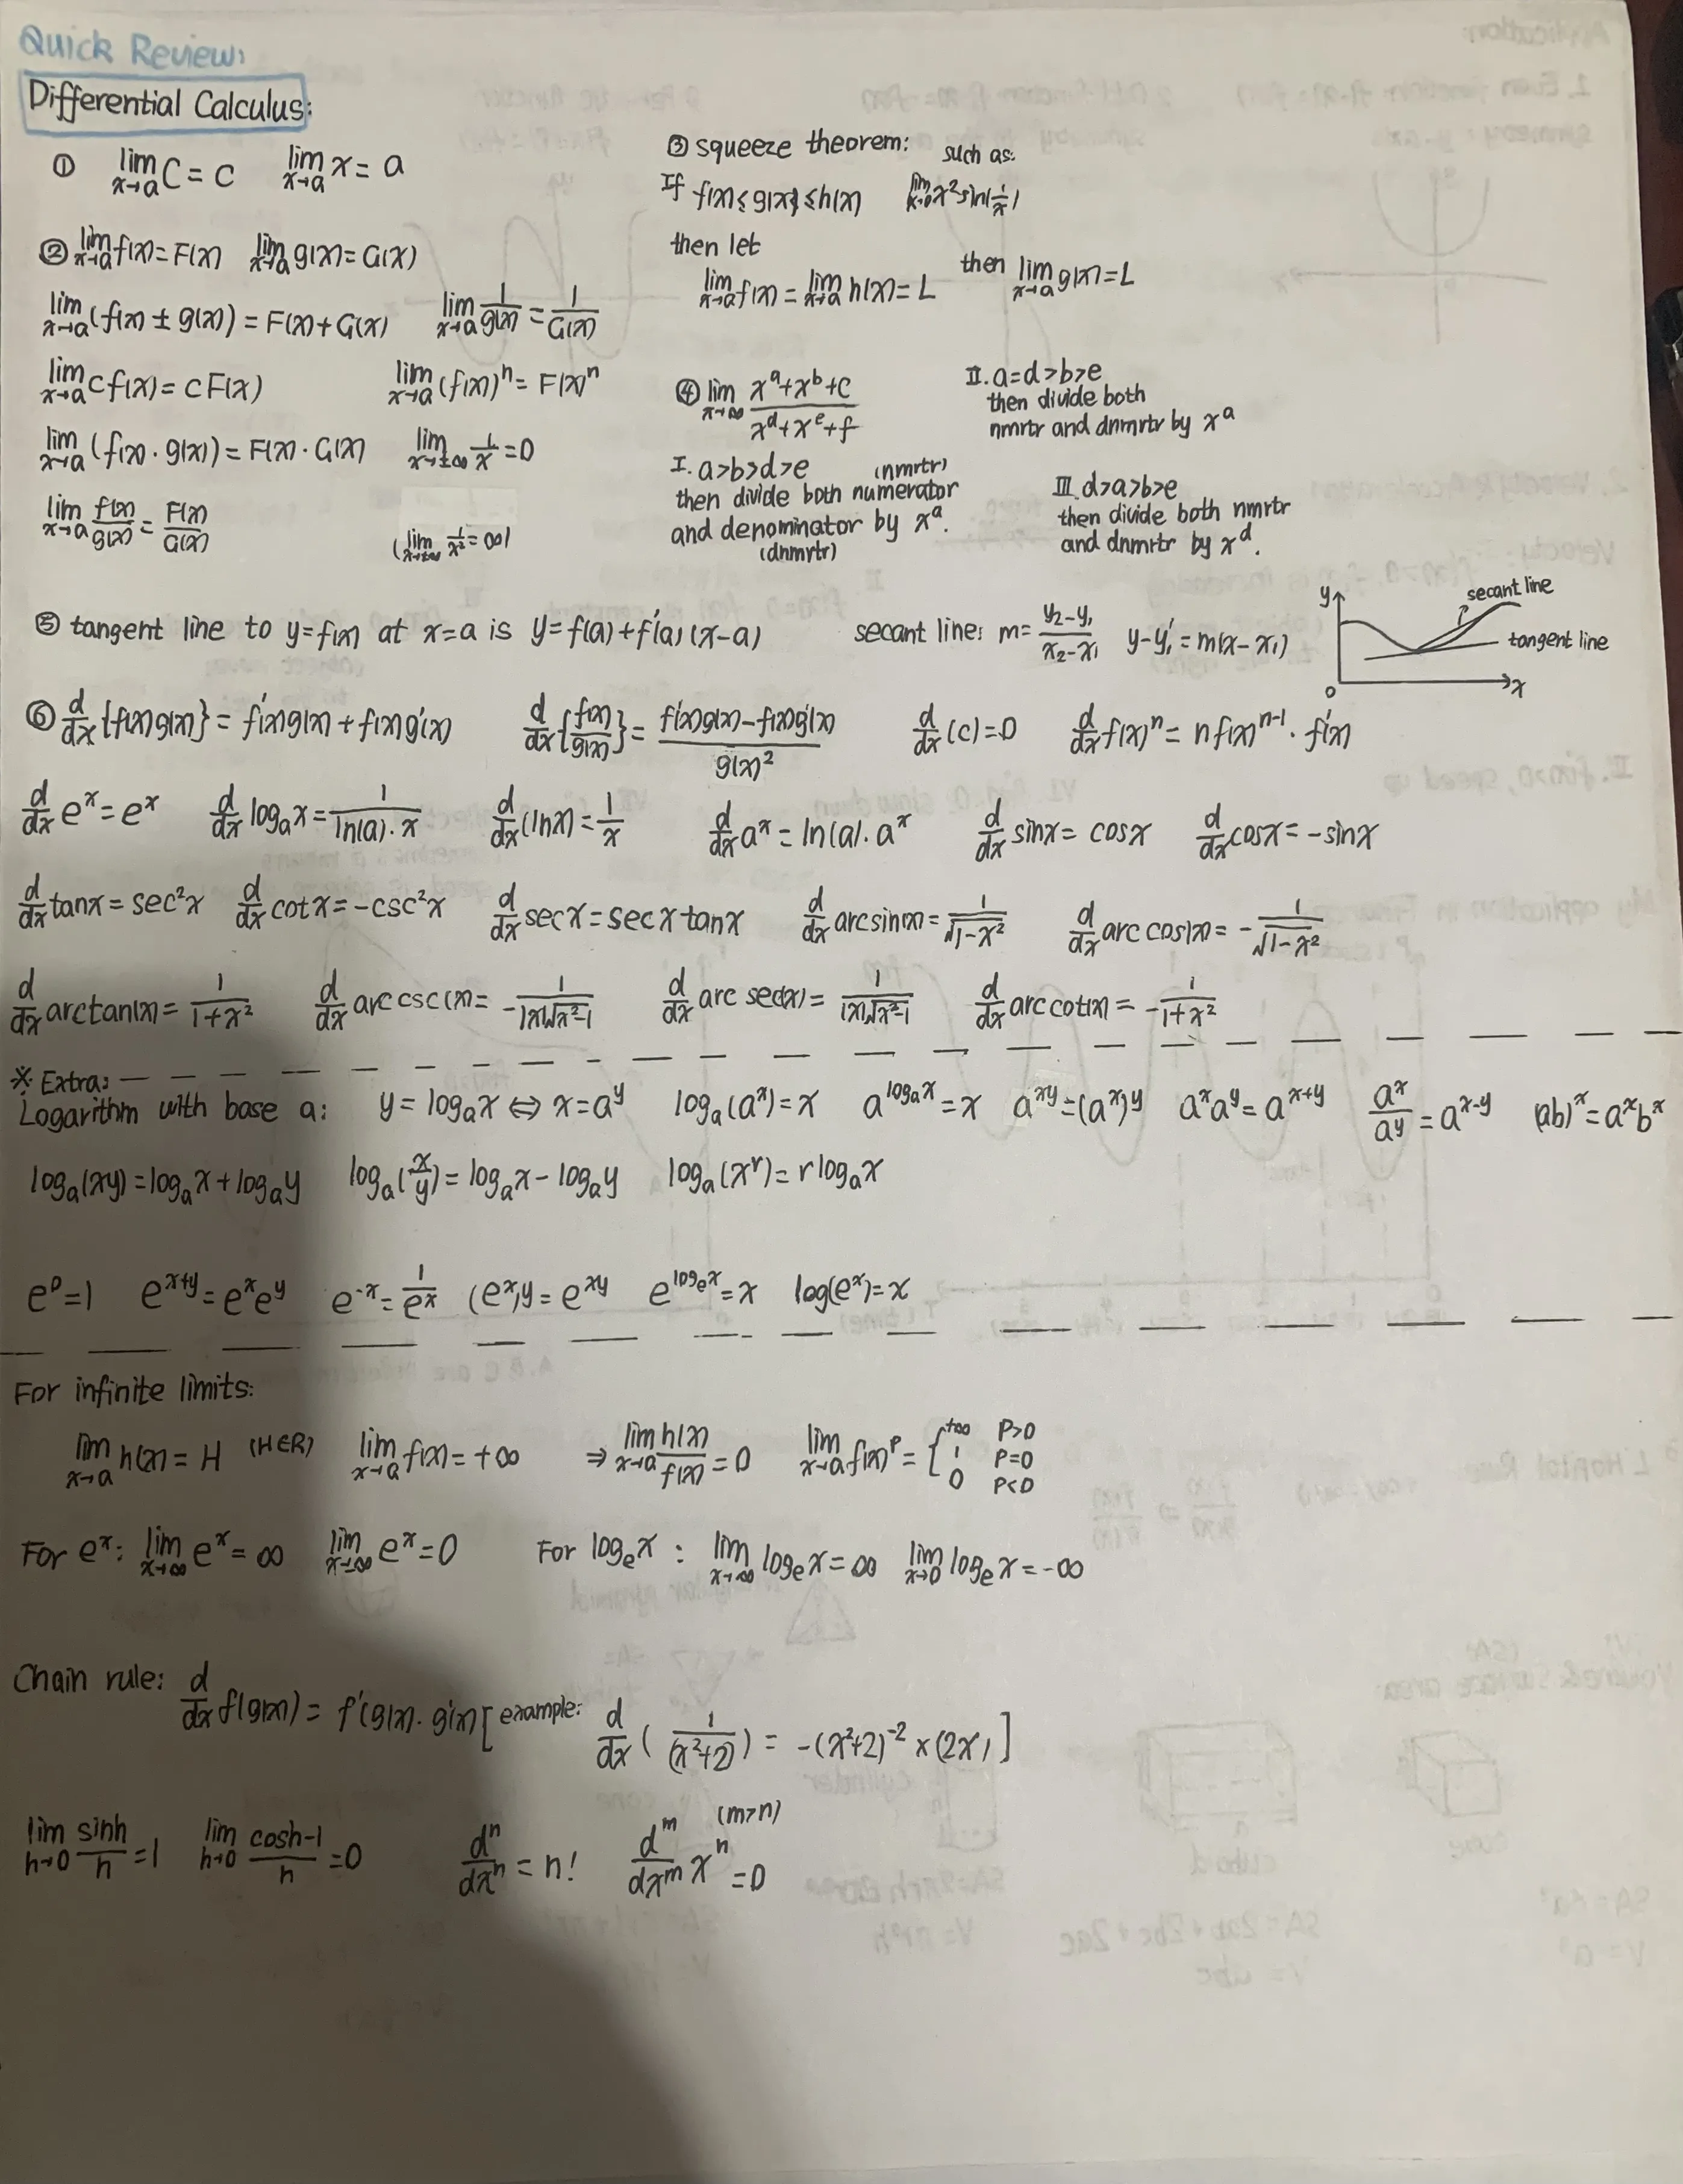 Quick Review:
Differential Calculus:
① lim x→a C = c   lim x→a x = a
② lim x→a f(x) = F(x)   lim x→a g(x) = G(x)
lim x→a (f(x) ± g(x)) = F(x) + G(x)   lim x→a 1/g(x) = 1/G(x)
lim x→a c f(x) = c F(x)   lim x→a (f(x))^n = F(x)^n
lim x→a (f(x) · g(x)) = F(x) · G(x)   lim x→±∞ 1/x = 0
lim x→a f(x)/g(x) = F(x)/G(x)   (lim 1/x² = ∞)
③ squeeze theorem: such as:
If f(x) ≤ g(x) ≤ h(x)   lim x→0 x² sin(1/x)
then let
lim x→a f(x) = lim x→a h(x) = L   then lim x→a g(x) = L
④ lim x→∞ (x^a + x^b + c)/(x^d + x^e + f)
I. a>b>d>e (nmrtr)
then divide both numerator
and denominator by x^a.
(dnmrtr)
II. a=d>b>e
then divide both
nmrtr and dnmrtr by x^a
III. d>a>b>e
then divide both nmrtr
and dnmrtr by x^d.
⑤ tangent line to y=f(x) at x=a is y=f(a)+f'(a)(x-a)   secant line: m = (y₂-y₁)/(x₂-x₁)   y-y₁' = m(x-x₁)
y
secant line
tangent line
0
x
⑥ d/dx {f(x)g(x)} = f'(x)g(x) + f(x)g'(x)   d/dx {f(x)/g(x)} = (f'(x)g(x) - f(x)g'(x))/g(x)²   d/dx (c) = 0   d/dx f(x)^n = n f(x)^(n-1) · f'(x)
d/dx e^x = e^x   d/dx log_a x = 1/(ln(a)·x)   d/dx (lnx) = 1/x   d/dx a^x = ln(a)·a^x   d/dx sinx = cosx   d/dx cosx = -sinx
d/dx tanx = sec²x   d/dx cotx = -csc²x   d/dx secx = secx tanx   d/dx arcsin(x) = 1/√(1-x²)   d/dx arccos(x) = -1/√(1-x²)
d/dx arctan(x) = 1/(1+x²)   d/dx arccsc(x) = -1/(|x|√(x²-1))   d/dx arcsec(x) = 1/(|x|√(x²-1))   d/dx arccot(x) = -1/(1+x²)
※ Extra:
Logarithm with base a:   y = log_a x ⇔ x = a^y   log_a(a^x) = x   a^(log_a x) = x   a^(xy) = (a^x)^y   a^x a^y = a^(x+y)   a^x/a^y = a^(x-y)   (ab)^x = a^x b^x
log_a(xy) = log_a x + log_a y   log_a(x/y) = log_a x - log_a y   log_a(x^r) = r log_a x
e^0 = 1   e^(x+y) = e^x e^y   e^(-x) = 1/e^x   (e^x)^y = e^(xy)   e^(log_e x) = x   log(e^x) = x
For infinite limits:
lim x→a h(x) = H (H∈R)   lim x→a f(x) = +∞   ⇒ lim x→a h(x)/f(x) = 0   lim x→a f(x)^p = { +∞ P>0
1 P=0
0 P<0
For e^x: lim x→∞ e^x = ∞   lim x→-∞ e^x = 0   For log_e x: lim x→∞ log_e x = ∞   lim x→0 log_e x = -∞
Chain rule: d/dx f(g(x)) = f'(g(x)·g'(x) [example: d/dx (1/(x²+2)) = -(x²+2)^-2 × (2x)]
lim h→0 sinh/h = 1   lim h→0 (cosh-1)/h = 0   d^n/dx^n = n!   d^m/dx^m x^n = 0 (m>n)